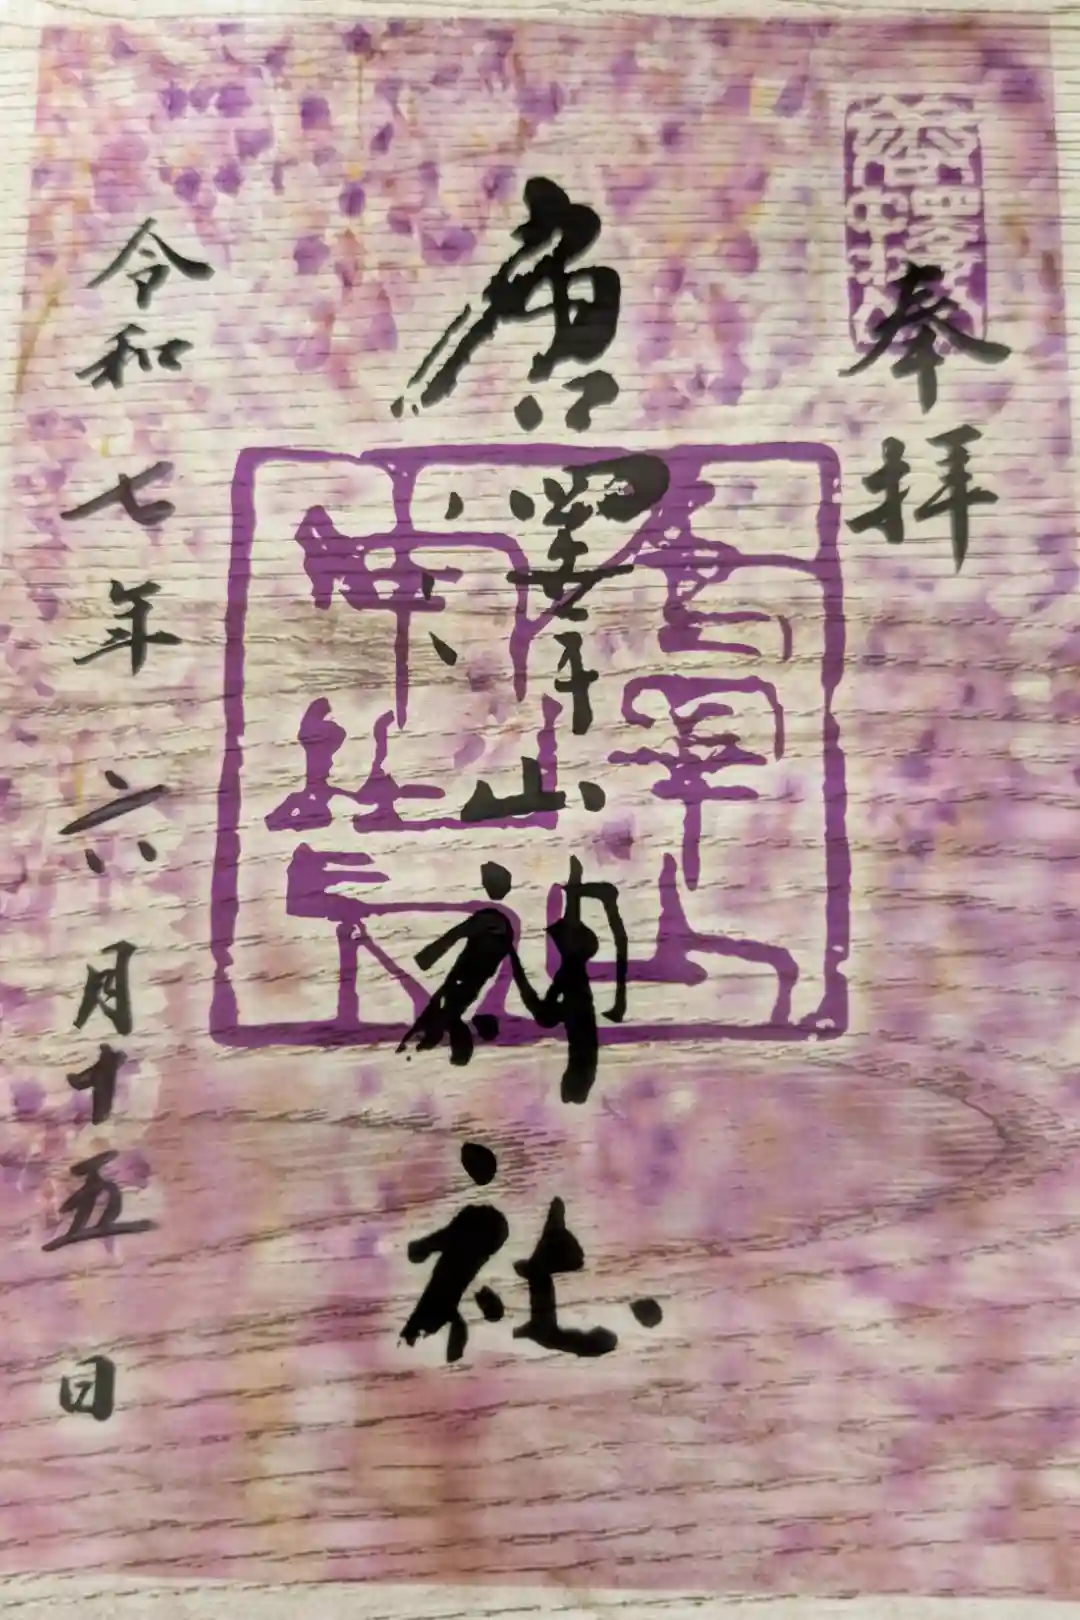 奉拝
唐澤山神社
唐澤山
神社印
令和七年六月十五日